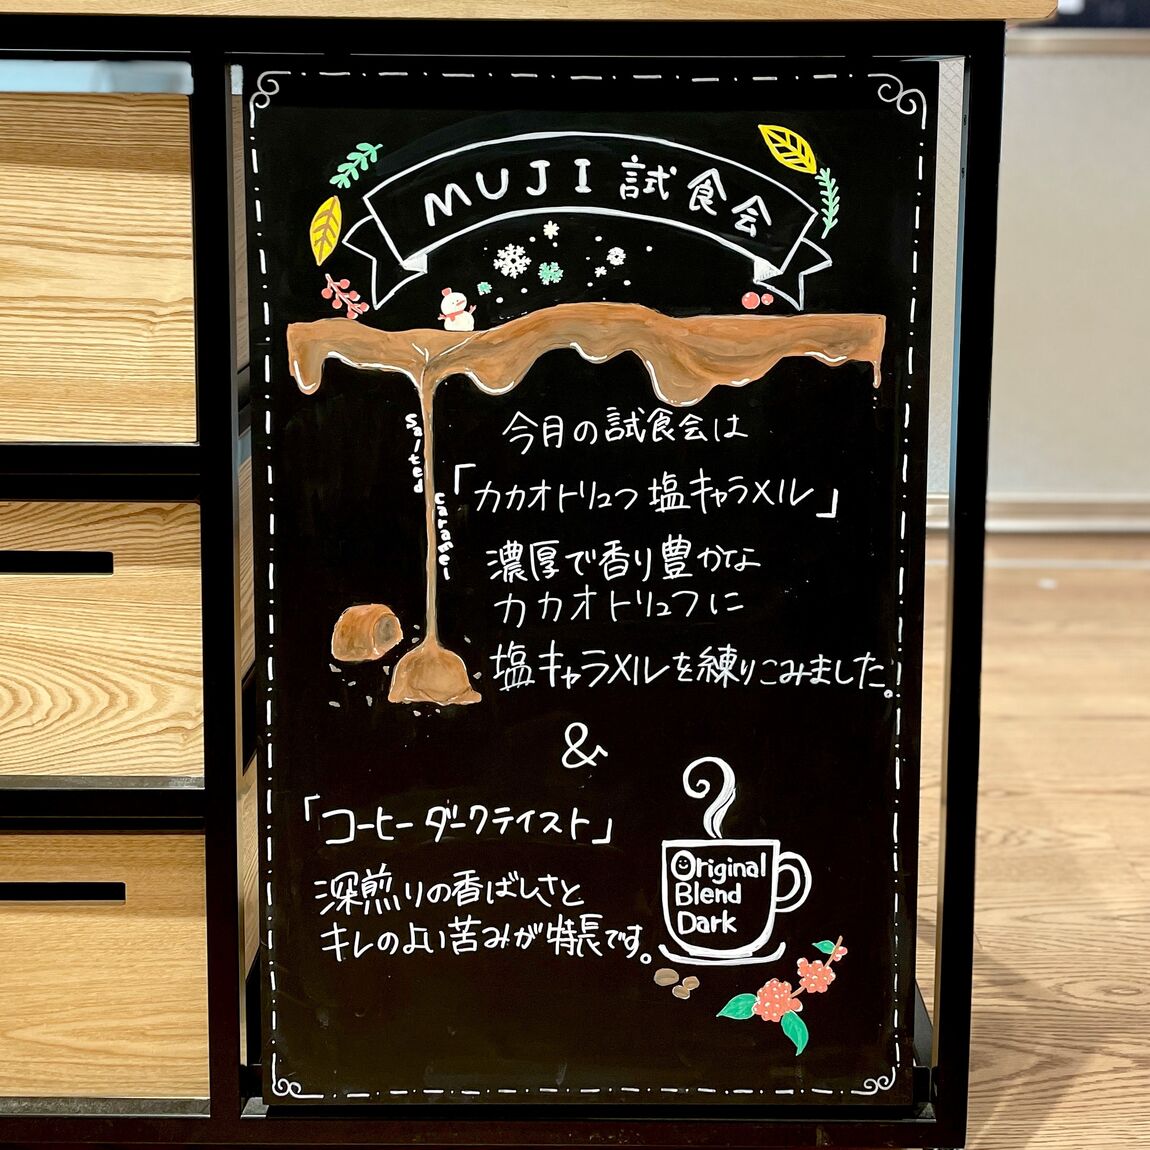 MUJI 試食会
今月の試食会は
「カカオトリュフ 塩キャラメル」
濃厚で香り豊かな
カカオトリュフに
塩キャラメルを練りこみました。
Salted
caramel
&
「コーヒー ダークテイスト」
深煎りの香ばしさと
キレのよい苦みが特長です。
Original
Blend
Dark